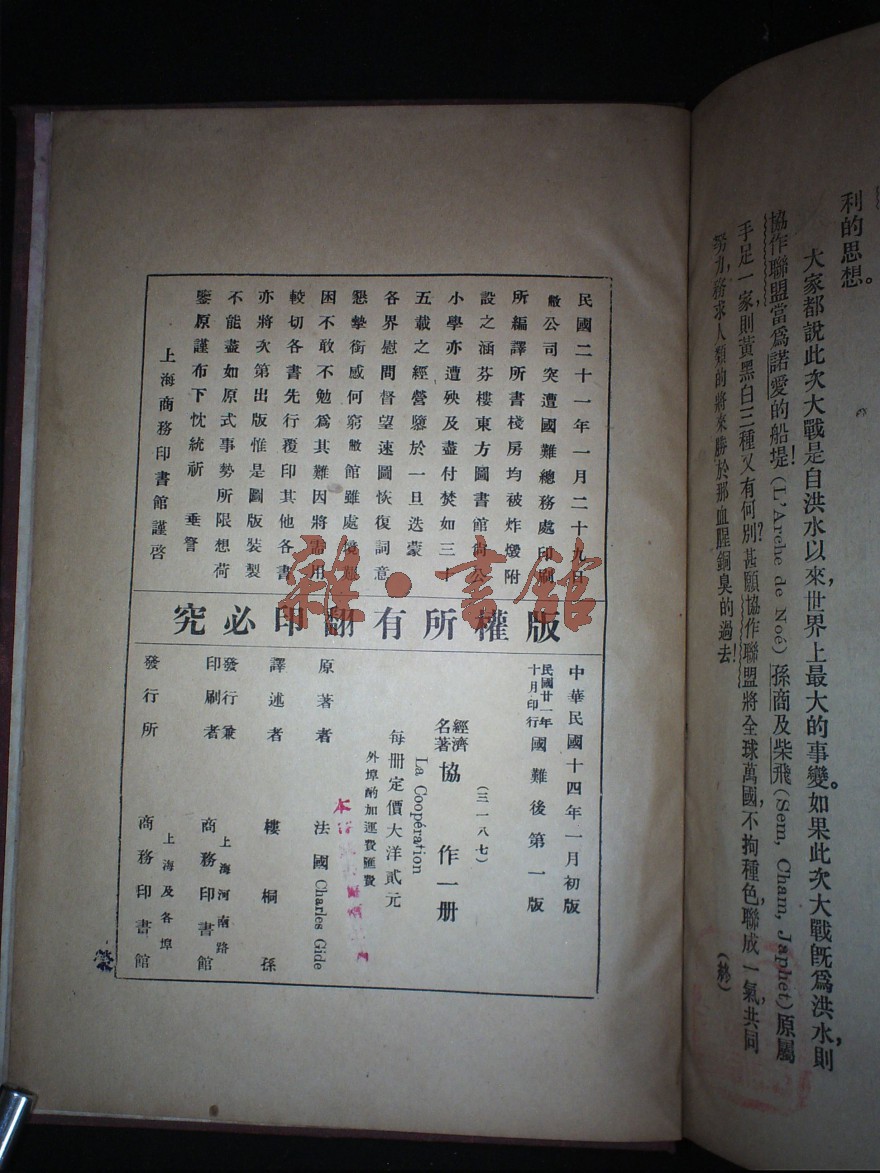 利的思想。
大家都說此次大戰是自洪水以來，世界上最大的事變。如果此次大戰旣爲洪水，則
協作聯盟當爲諾愛的船堤(L'Arche de Noé)！孫商及柴飛(Sem, Cham, Japhet)原屬
手足一家，則黃黑白三種又有何別？甚願協作聯盟將全球萬國，不拘種色，聯成一氣，共同
努力，務求人類的將來勝於那血腥銅臭的過去！
(終)
民國二十一年一月二十九日
敝公司突遭國難總務處印刷
所編譯所書棧房均被炸燬附
設之涵芬樓東方圖書館尙公
小學亦遭殃及盡付焚如三十
五載之經營隳於一旦迭蒙
各界慰問督望速圖恢復詞意
懇摯銜感何窮敝館雖處境艱
困不敢不勉爲其難因將需用
較切各書先行覆印其他各書
亦將次第出版惟是圖版裝製
不能盡如原式事勢所限想荷
鑒原謹布下忱統祈 垂詧
上海商務印書館謹啓
版權所有翻印必究
中華民國十四年一月初版
民國廿一年十月印行 國難後第一版
(三一八七)
經濟名著 協作一册
La Coopération
每册定價大洋貳元
外埠酌加運費匯費
原著者 法國 Charles Gide
譯述者 樓桐孫
發行兼印刷者 上海河南路 商務印書館
發行所 上海及各埠 商務印書館
雜·書館